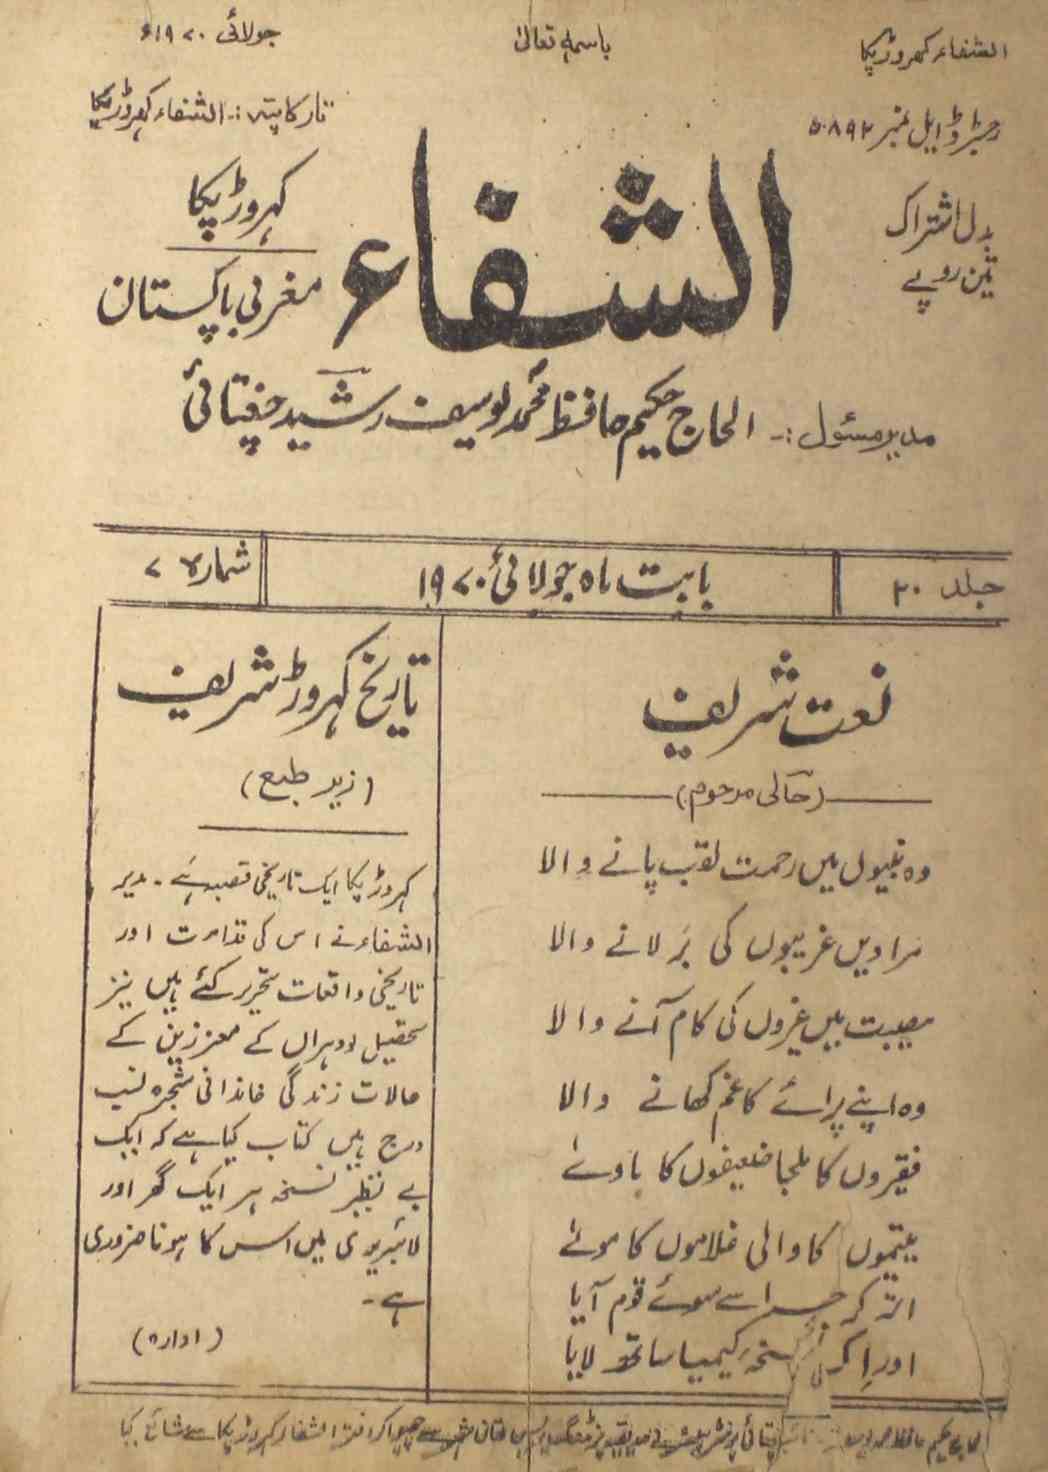 الشفاء کہروڑ پکا
باسمہٖ تعالیٰ
جولائی ۱۹۷۰ء
رجسٹرڈ ایل نمبر ۵۰۸۹۲
تار کا پتہ :۔ الشفاء کہروڑ پکا
بدل اشتراک
تین روپے
الشفاء
کہروڑ پکا
مغربی پاکستان
مدیر مسئول :۔ الحاج حکیم حافظ محمد یوسف رشید چغتائی
جلد ۲۰
بابت ماہ جولائی ۱۹۷۰
شمارہ ۷
نعت شریف
(حالی مرحوم)
وہ نبیوں میں رحمت لقب پانے والا
مرادیں غریبوں کی بَر لانے والا
مصیبت میں غیروں کی کام آنے والا
وہ اپنے پرائے کا غم کھانے والا
فقیروں کا ملجا ضعیفوں کا ماویٰ
یتیموں کا والی غلاموں کا مولیٰ
اتر کر حرا سے سوئے قوم آیا
اور اک نسخہ کیمیا ساتھ لایا
تاریخ کہروڑ شریف
(زیر طبع)
کہروڑ پکا ایک تاریخی قصبہ ہے ۔ مدیر
الشفاء نے اس کی قدامت اور
تاریخی واقعات تحریر کئے ہیں نیز
تحصیل لودہراں کے معززین کے
حالات زندگی خاندانی شجرہ نسب
درج ہیں کتاب کیا ہے کہ ایک
بے نظیر نسخہ ہر ایک گھر اور
لائبریری میں اس کا ہونا ضروری
ہے ۔
(ادارہ)
حکیم حافظ محمد یوسف چغتائی پرنٹر پبلشر نے صدیقیہ پرنٹنگ پریس ملتان شہر سے چھپوا کر دفتر الشفاء کہروڑ پکا سے شائع کیا